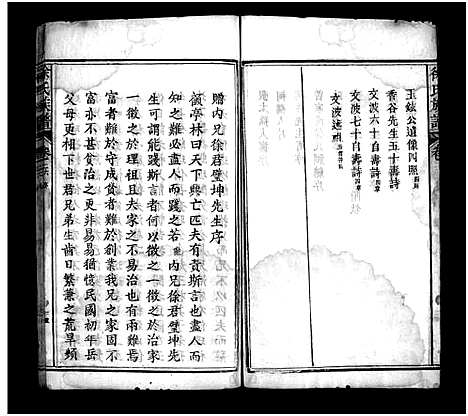 玉鉉公遺像四照
香谷先生五十壽詩
文波六十自壽詩
文波七十自壽詩
文波遺照
徐氏族譜
贈內兄徐君璧坤先生序
顧亭林曰天下興亡匹夫有責斯言也盡人而
知之矣雖必盡人而踐之若內兄徐君璧坤先
生可謂能踐斯言者何以徵之一徵之於治家
一徵之於理祖且夫家之不易治也有兩難焉
富者難於守成貧者難於創業我兄之家固不
富亦不甚貧以治之更非易易猶憶民國初年岳
父母更相下世君兄弟生齒日繁兼之荒旱頻